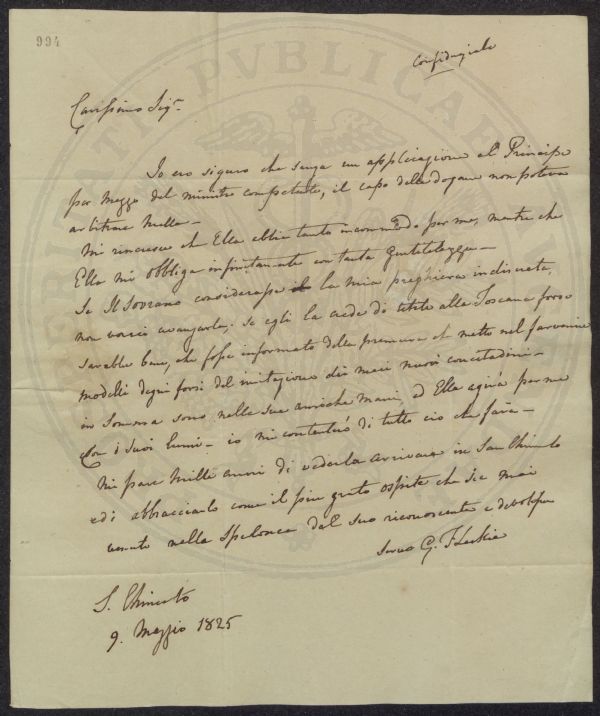 994
Confidenziale
Carissimo Sigr.
Io ero siguro che senza un applicazione al Principe
per mezzo del ministro competente, il capo delle dogane non poteva
arbitrare nulla –
Mi rincresce che Ella abbia tanto incommodo per me, mentre che
Ella mi obbliga infinitamente con tanta
Se Il Sovrano considerasse la mia preghiera indiscreta,
non vorrei avanzarla; se egli la crede di utile alla Toscana forse
sarebbe bene, che fosse informato della premura ch metto nel
modelli degni forsi del imitazione dei miei nuovi concitadini –
in somma sono nelle sue amiche mani, ed Ella agirà per me
Con i suoi lumi – io mi contenterò di tutto cio che farà –
Mi pare mille anni di vederla arrivare in San Chimento
e di abbracciarlo come il piu grato ospite che sia mai
venuto nella Spelonca dal suo riconoscente e
Servo G.
S. Chimento
9. Maggio 1825
PVBLICAE